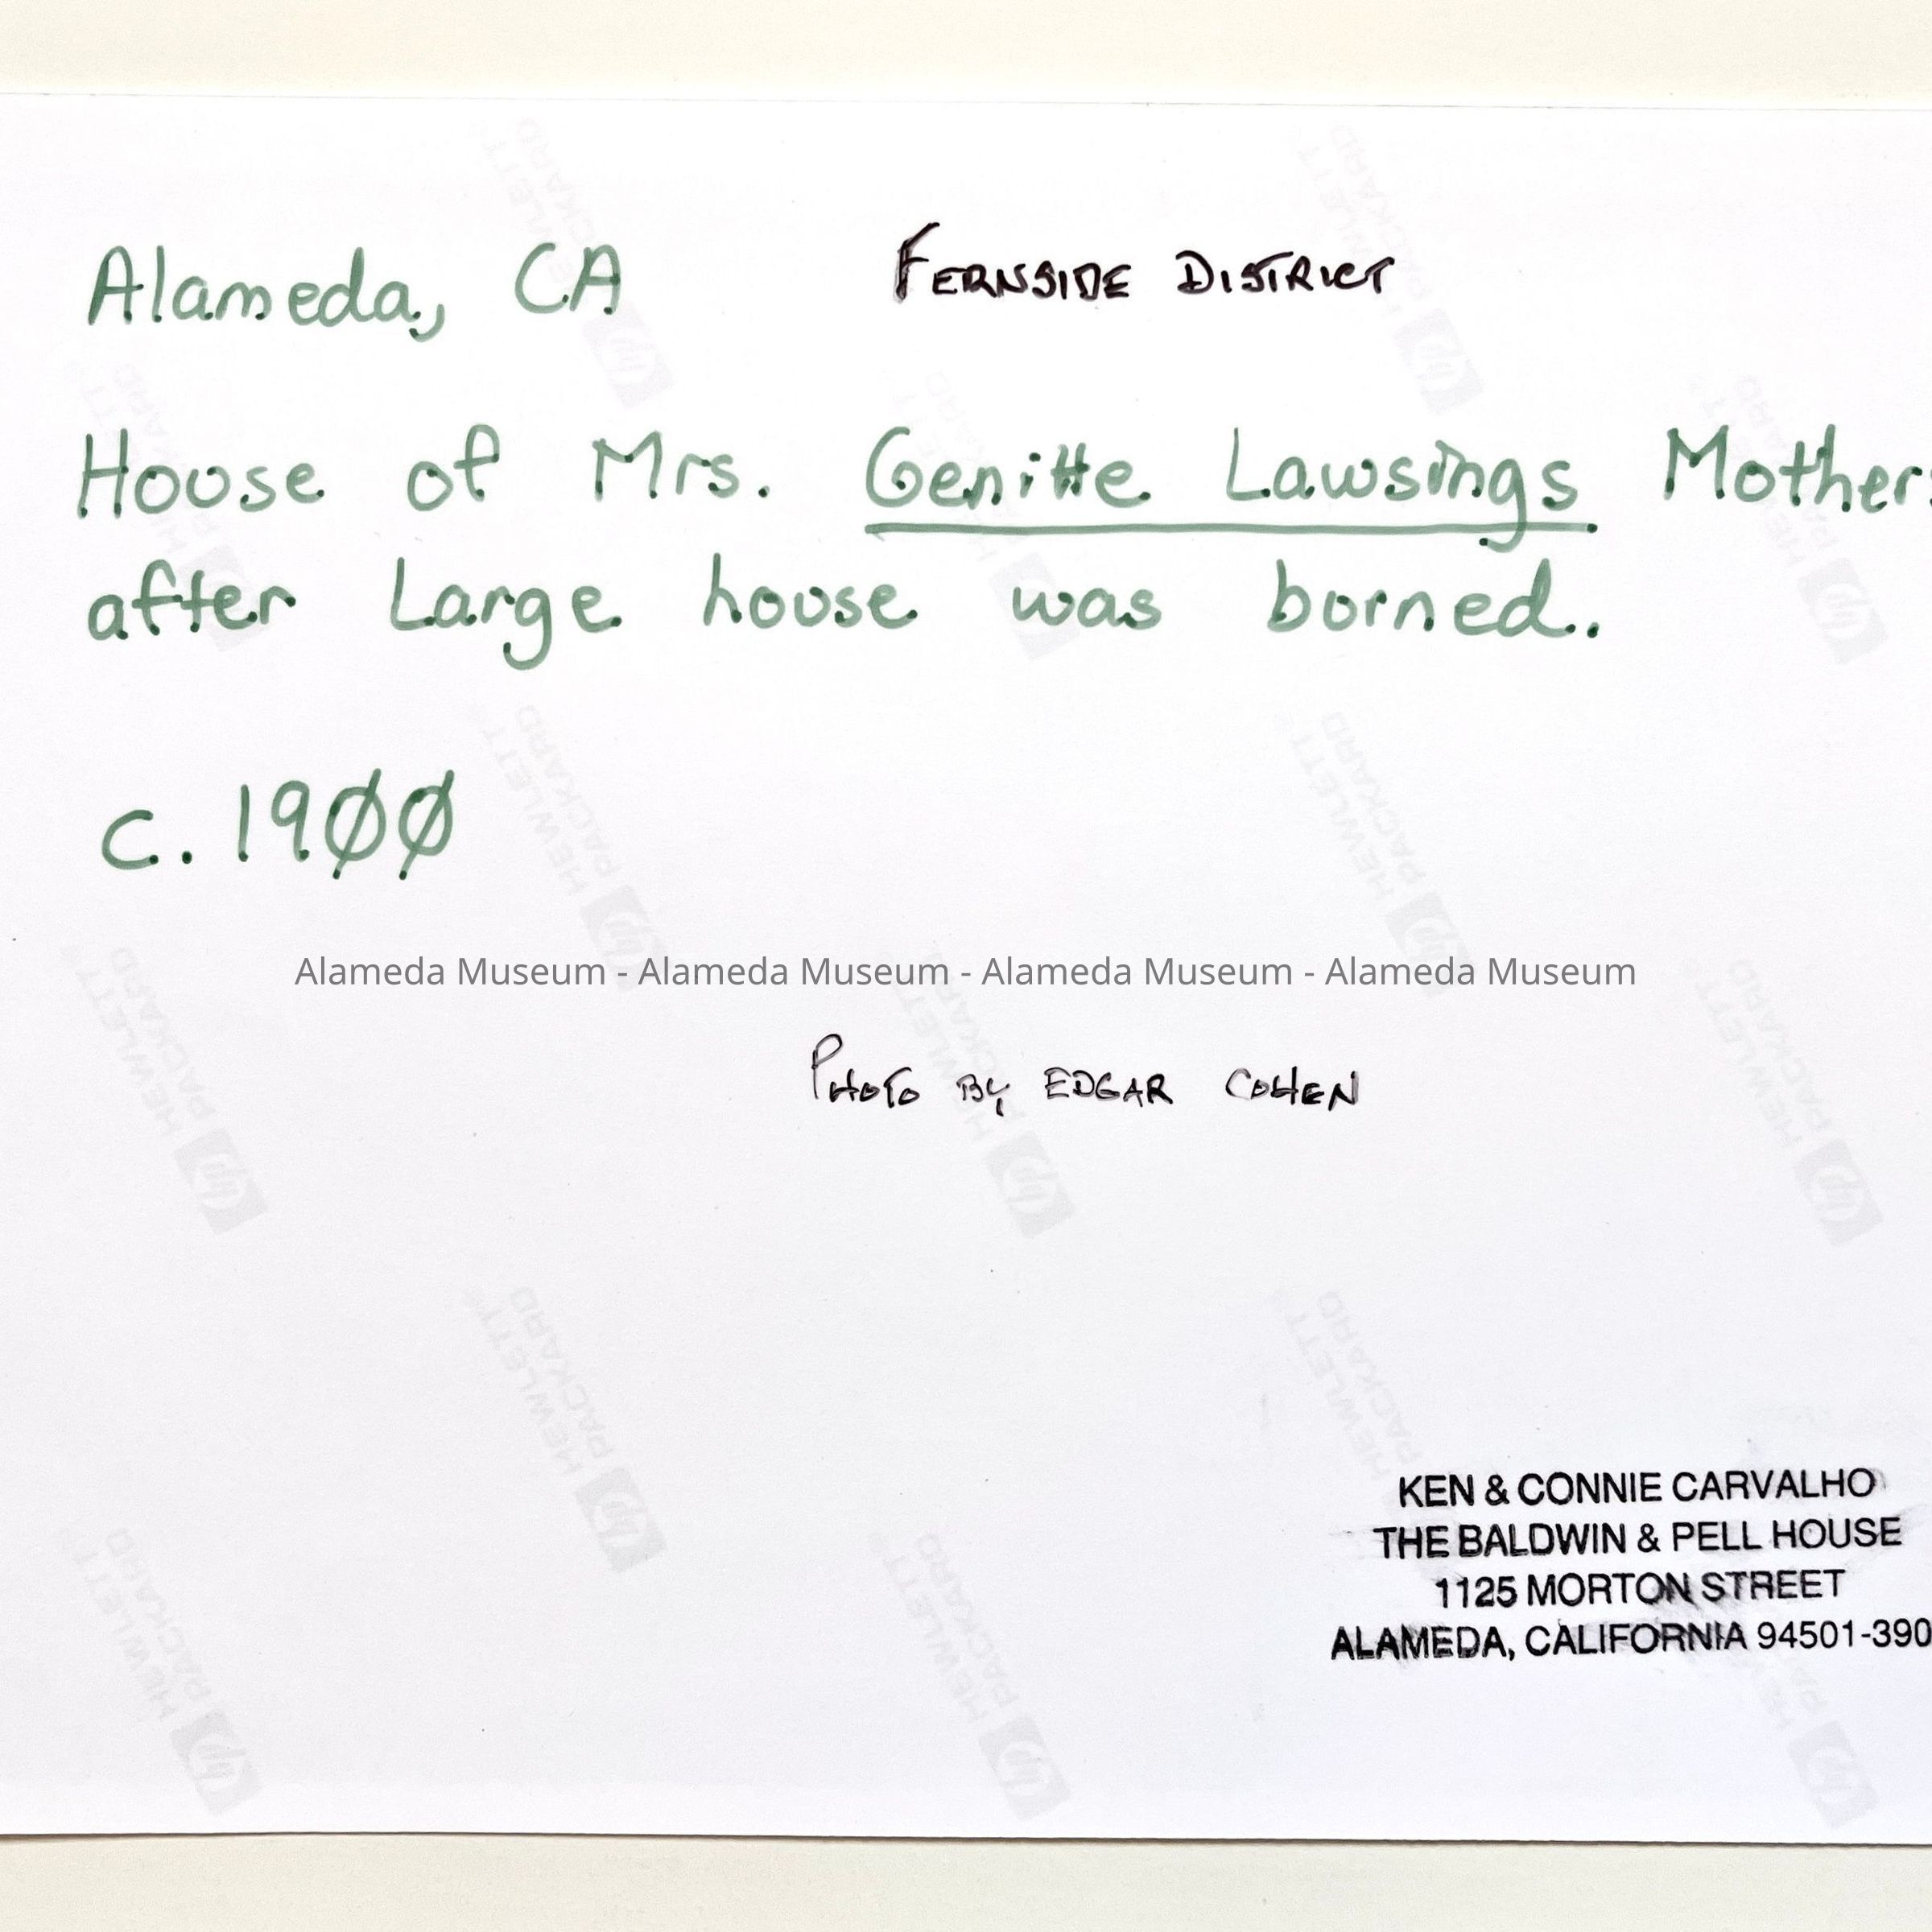 Alameda, CA FERNSIDE DISTRICT
House of Mrs. Genitte Lawsings Mothers
after Large house was borned..
c. 1900
Alameda Museum - Alameda Museum - Alameda Museum - Alameda Museum
PHOTO BY EDGAR COHEN
KEN & CONNIE CARVALHO
THE BALDWIN & PELL HOUSE
1125 MORTON STREET
ALAMEDA, CALIFORNIA 94501-390
HEWLETT PACKARD